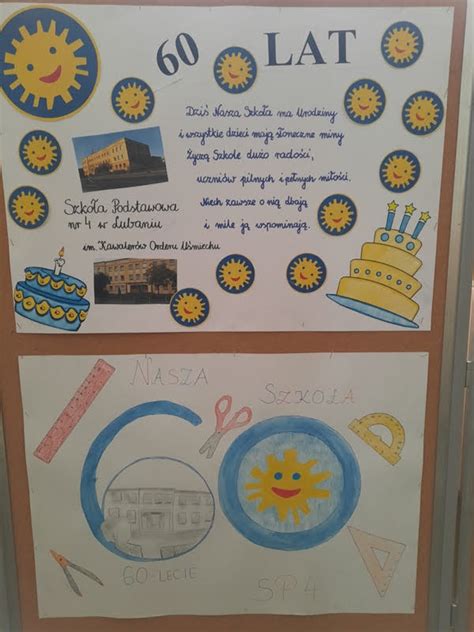 60 LAT
Dziś Nasza Szkoła ma Urodziny
i wszystkie dzieci mają słoneczne miny
Życzą Szkole dużo radości,
uczniów pilnych i pełnych miłości.
Niech zawsze o nią dbają
i mile ją wspominają.
Szkoła Podstawowa
nr 4 w Lubaniu
im. Kawalerów Orderu Uśmiechu
NASZA
SZKOŁA
60
60-LECIE
SP4